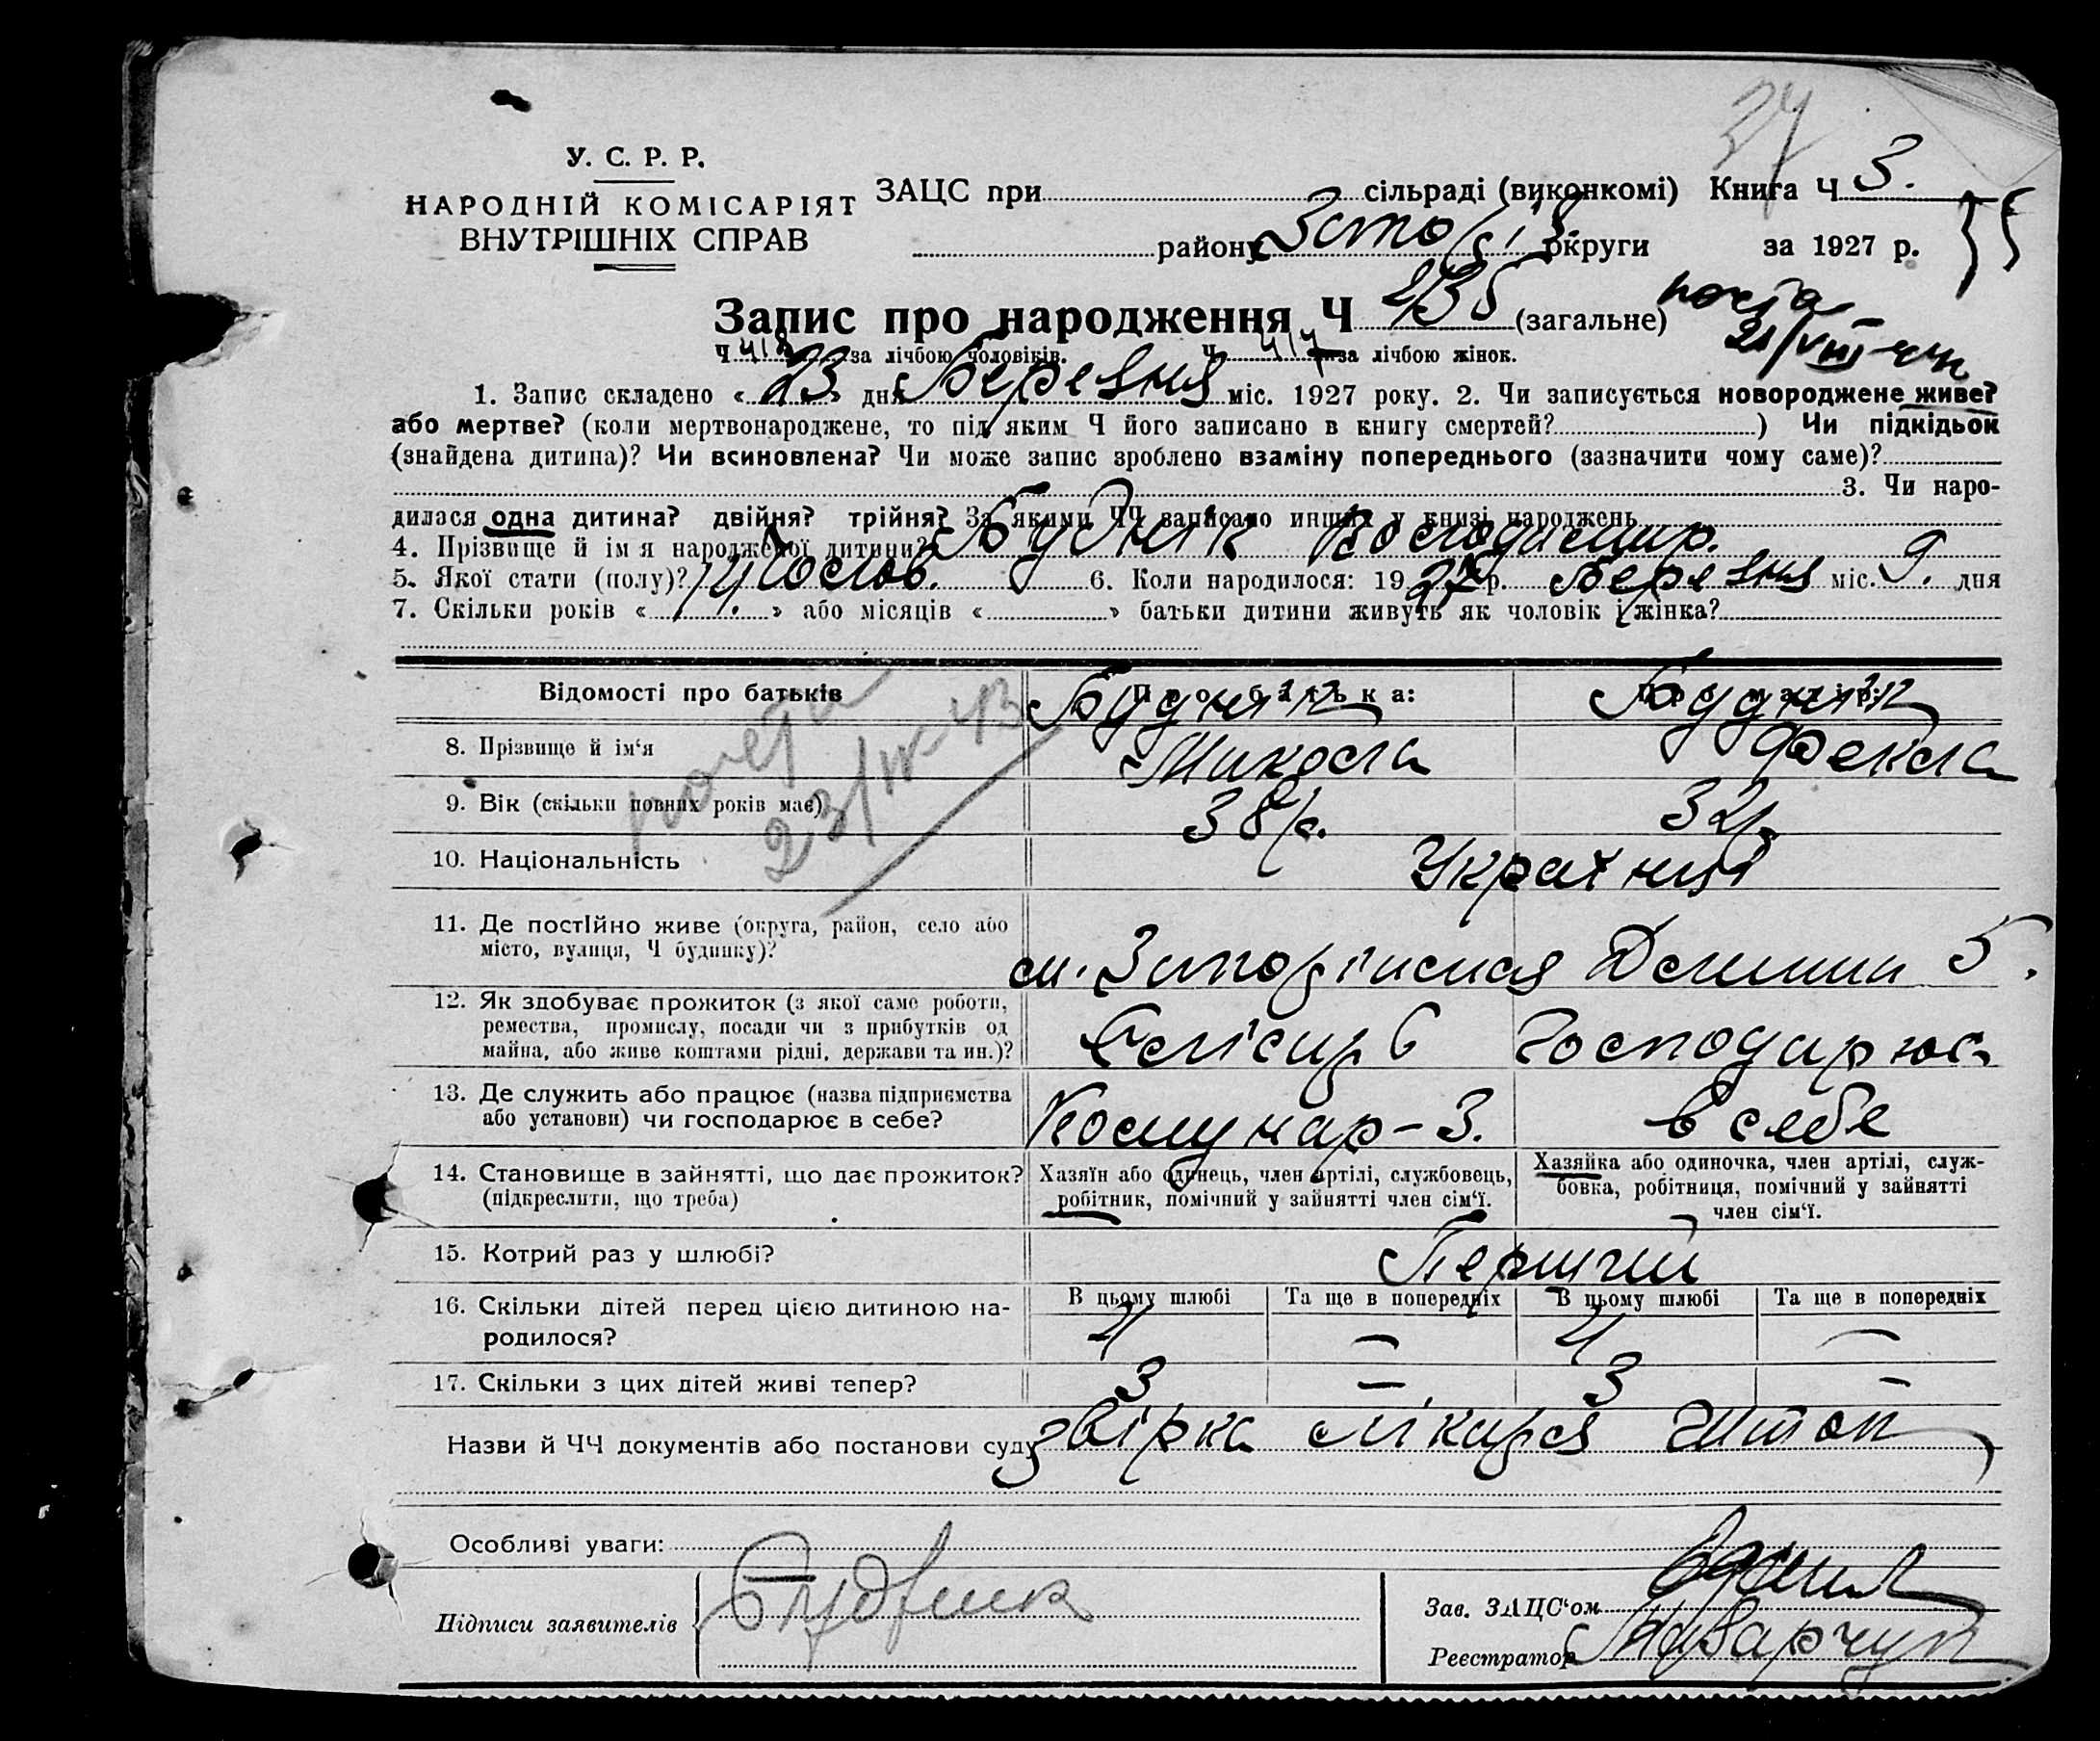 У. С. Р. Р.
НАРОДНІЙ КОМІСАРІЯТ
ВНУТРІШНІХ СПРАВ
ЗАЦС при сільраді (виконкомі) Книга Ч 3.
району округи за 1927 р.
Запис про народження Ч 835 (загальне)
Ч 418 за лічбою чоловіків. Ч 417 за лічбою жінок.
1. Запис складено « 23 » дня Березня міс. 1927 року. 2. Чи записується новороджене живе?
або мертве? (коли мертвонароджене, то під яким Ч його записано в книгу смертей? ) Чи підкідьок
(знайдена дитина)? Чи всиновлена? Чи може запис зроблено взаміну попереднього (зазначити чому саме)?
3. Чи наро-
дилася одна дитина? двійня? трійня? За якими ЧЧ записано инших у книзі народжень
4. Прізвище й ім'я народженої дитини? Будник Володимир.
5. Якої стати (полу)? Чолов. 6. Коли народилося: 1927 р. Березня міс. 9. дня
7. Скільки років « » або місяців « » батьки дитини живуть як чоловік і жінка?
Відомості про батьків Про батька: Про матір:
8. Прізвище й ім'я Будник Микола Будник Фекла
9. Вік (скільки повних років має) 38 р. 32 р.
10. Національність Українці
11. Де постійно живе (округа, район, село або
місто, вулиця, Ч будинку)? 5.
12. Як здобуває прожиток (з якої саме роботи,
ремества, промислу, посади чи з прибутків од
майна, або живе коштами рідні, держави та ин.)? Слісар 6 Господарює
13. Де служить або працює (назва підприємства
або установи) чи господарює в себе? Комунар - 3. в себе
14. Становище в зайнятті, що дає прожиток?
(підкреслити, що треба)
Хазяїн або одинець, член артілі, службовець,
робітник, помічний у зайнятті член сім'ї.
Хазяйка або одиночка, член артілі, служ-
бовка, робітниця, помічний у зайнятті
член сім'ї.
15. Котрий раз у шлюбі? Перший
16. Скільки дітей перед цією дитиною на-
родилося?
В цьому шлюбі Та ще в попередніх В цьому шлюбі Та ще в попередніх
4 — 4 —
17. Скільки з цих дітей живі тепер? 3 — 3 —
Назви й ЧЧ документів або постанови суду звірка лікаря
Особливі уваги:
Підписи заявителів Будник
Зав. ЗАЦС'ом
Реєстратор